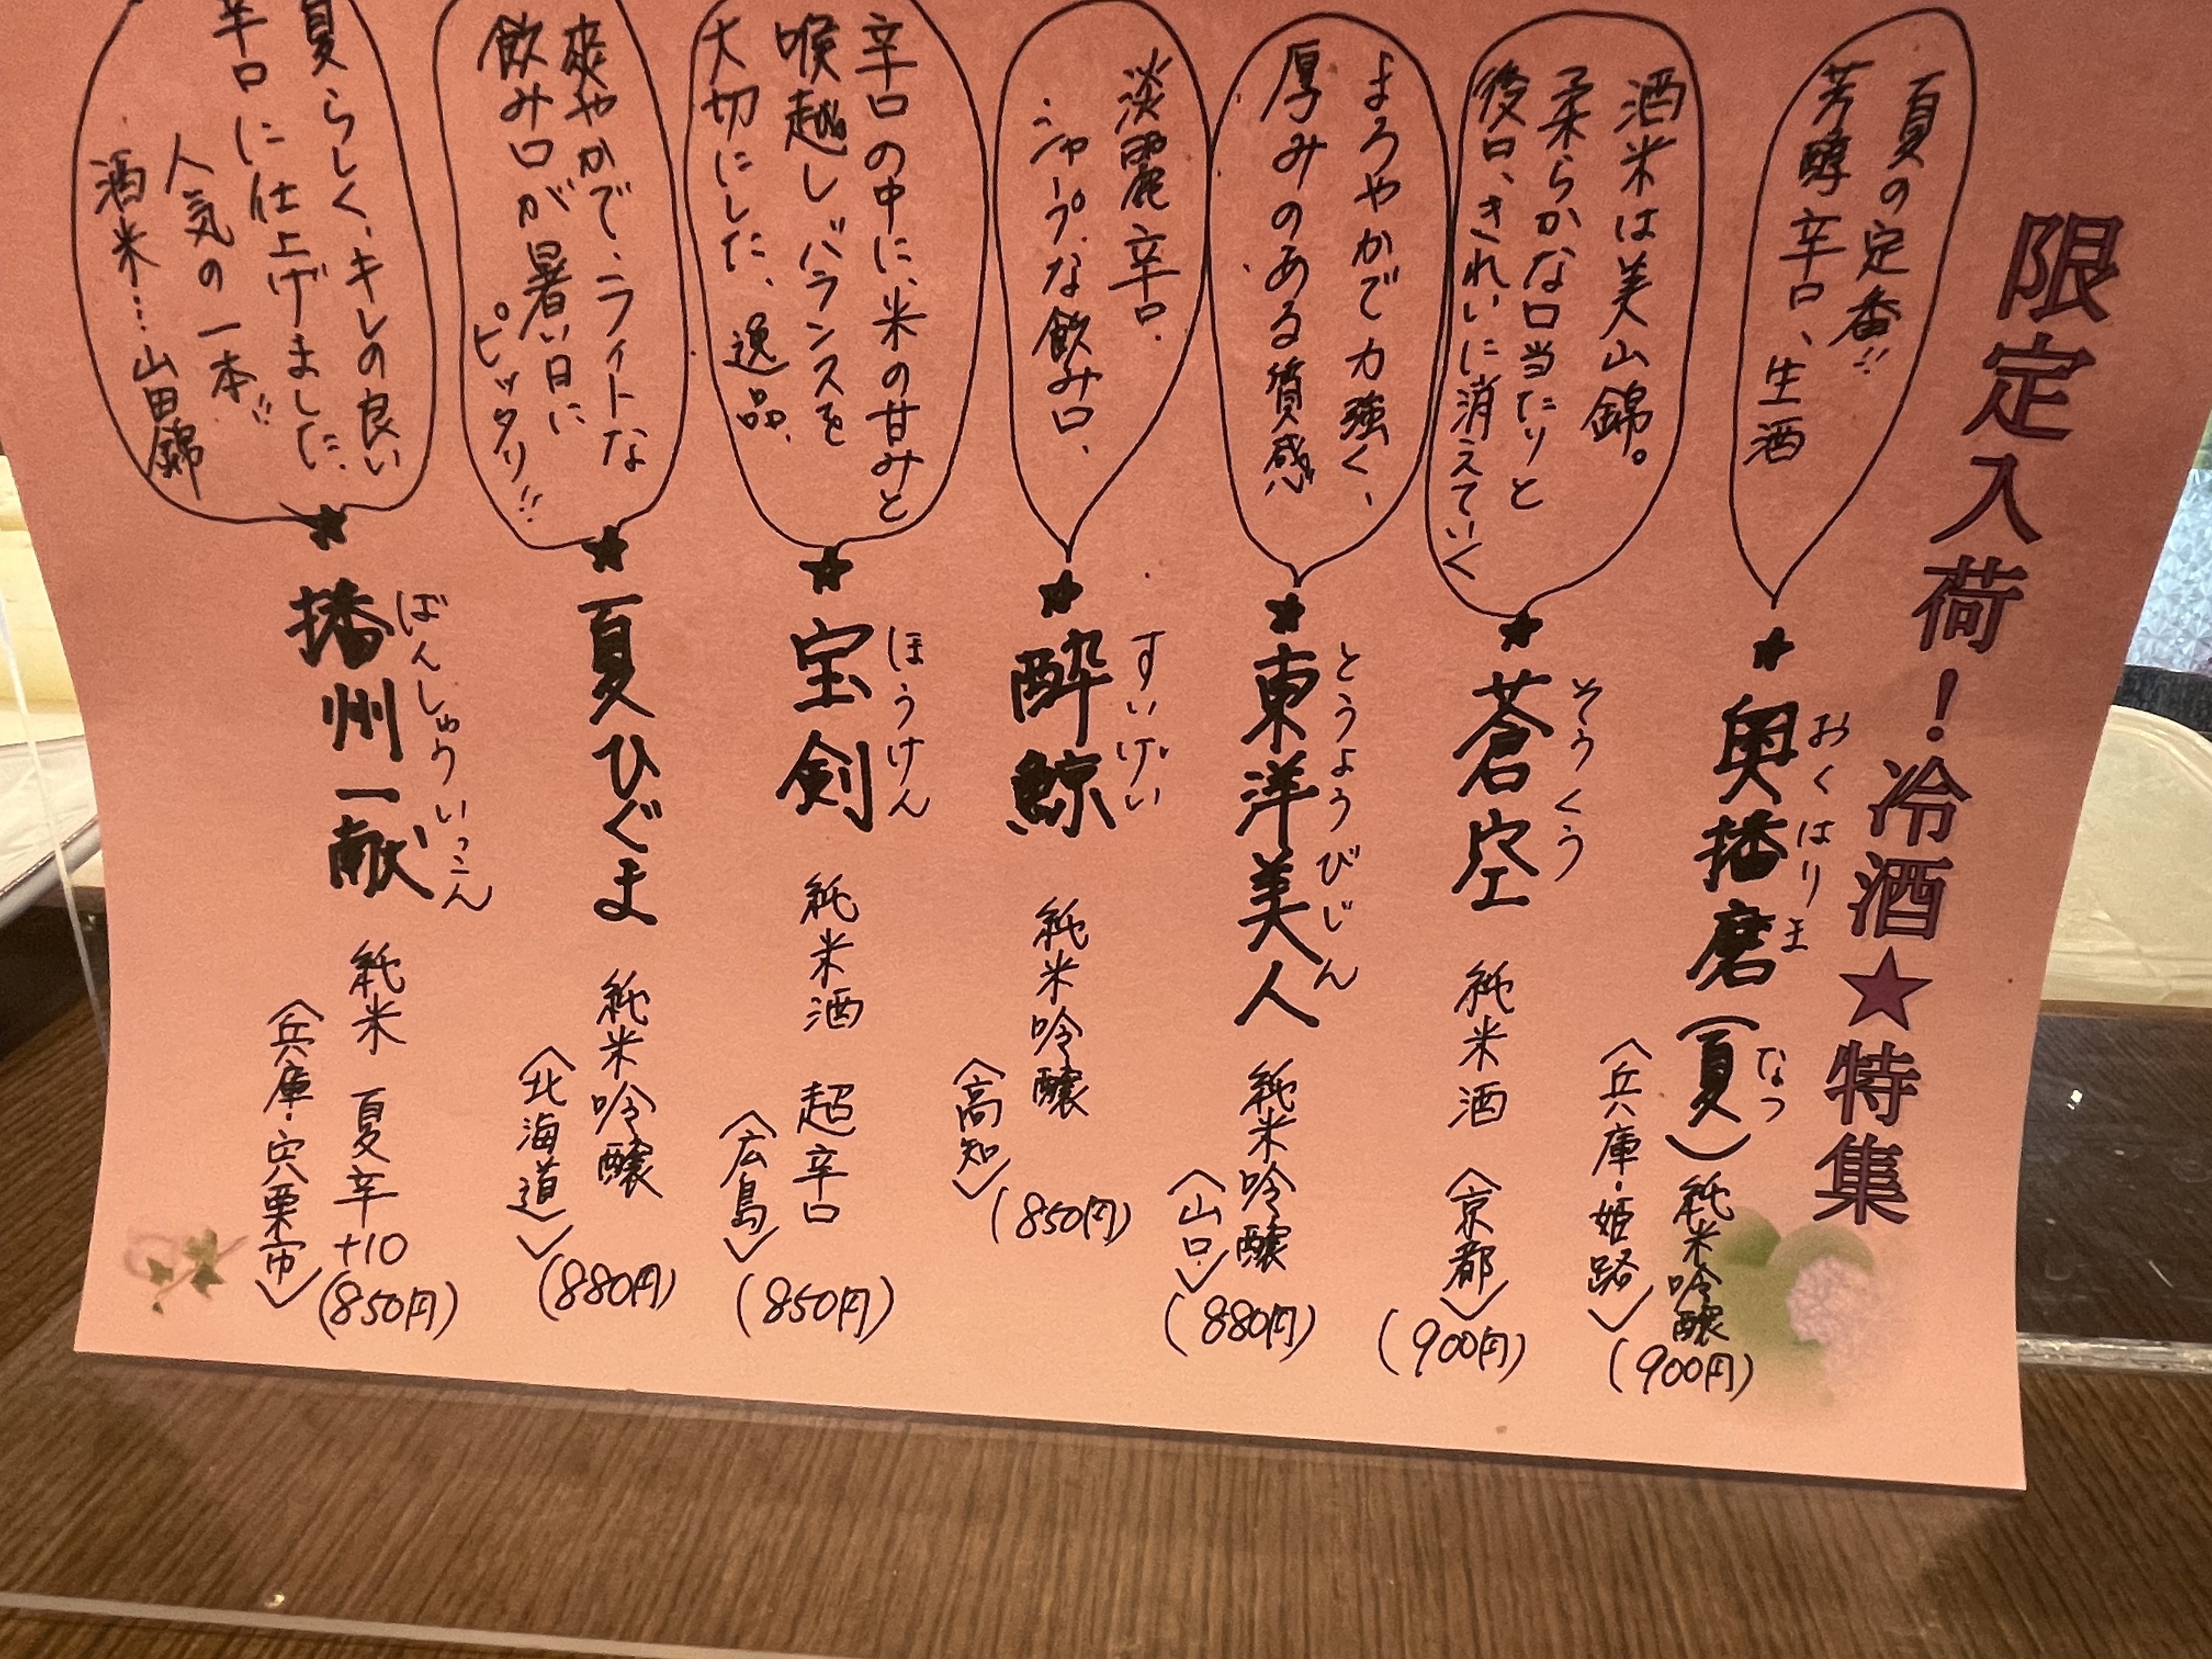 限定入荷！冷酒★特集
夏の定番!!
芳醇辛口、生酒
★奥播磨(夏)純米吟醸
おくはりま なつ
〈兵庫・姫路〉
(900円)
酒米は美山錦。
柔らかな口当たりと
後口、きれいに消えていく
★蒼空 純米酒 〈京都〉
そうくう
(900円)
まろやかで力強く、
厚みのある質感
★東洋美人 純米吟醸
とうようびじん
〈山口〉
(880円)
淡麗辛口.
シャープな飲み口、
★酔鯨 純米吟醸
すいげい
〈高知〉
(850円)
辛口の中に、米の甘みと
喉越しバランスを
大切にした、逸品、
★宝剣 純米酒 超辛口
ほうけん
〈広島〉
(850円)
爽やかで、ライトな
飲み口が暑い日に
ピッタリ!!
★夏ひぐま 純米吟醸
〈北海道〉
(880円)
夏らしく、キレの良い
辛口に仕上げました、
人気の一本!!
酒米…山田錦
★播州一献 純米 夏辛+10
ばんしゅういっこん
〈兵庫・宍粟市〉
(850円)